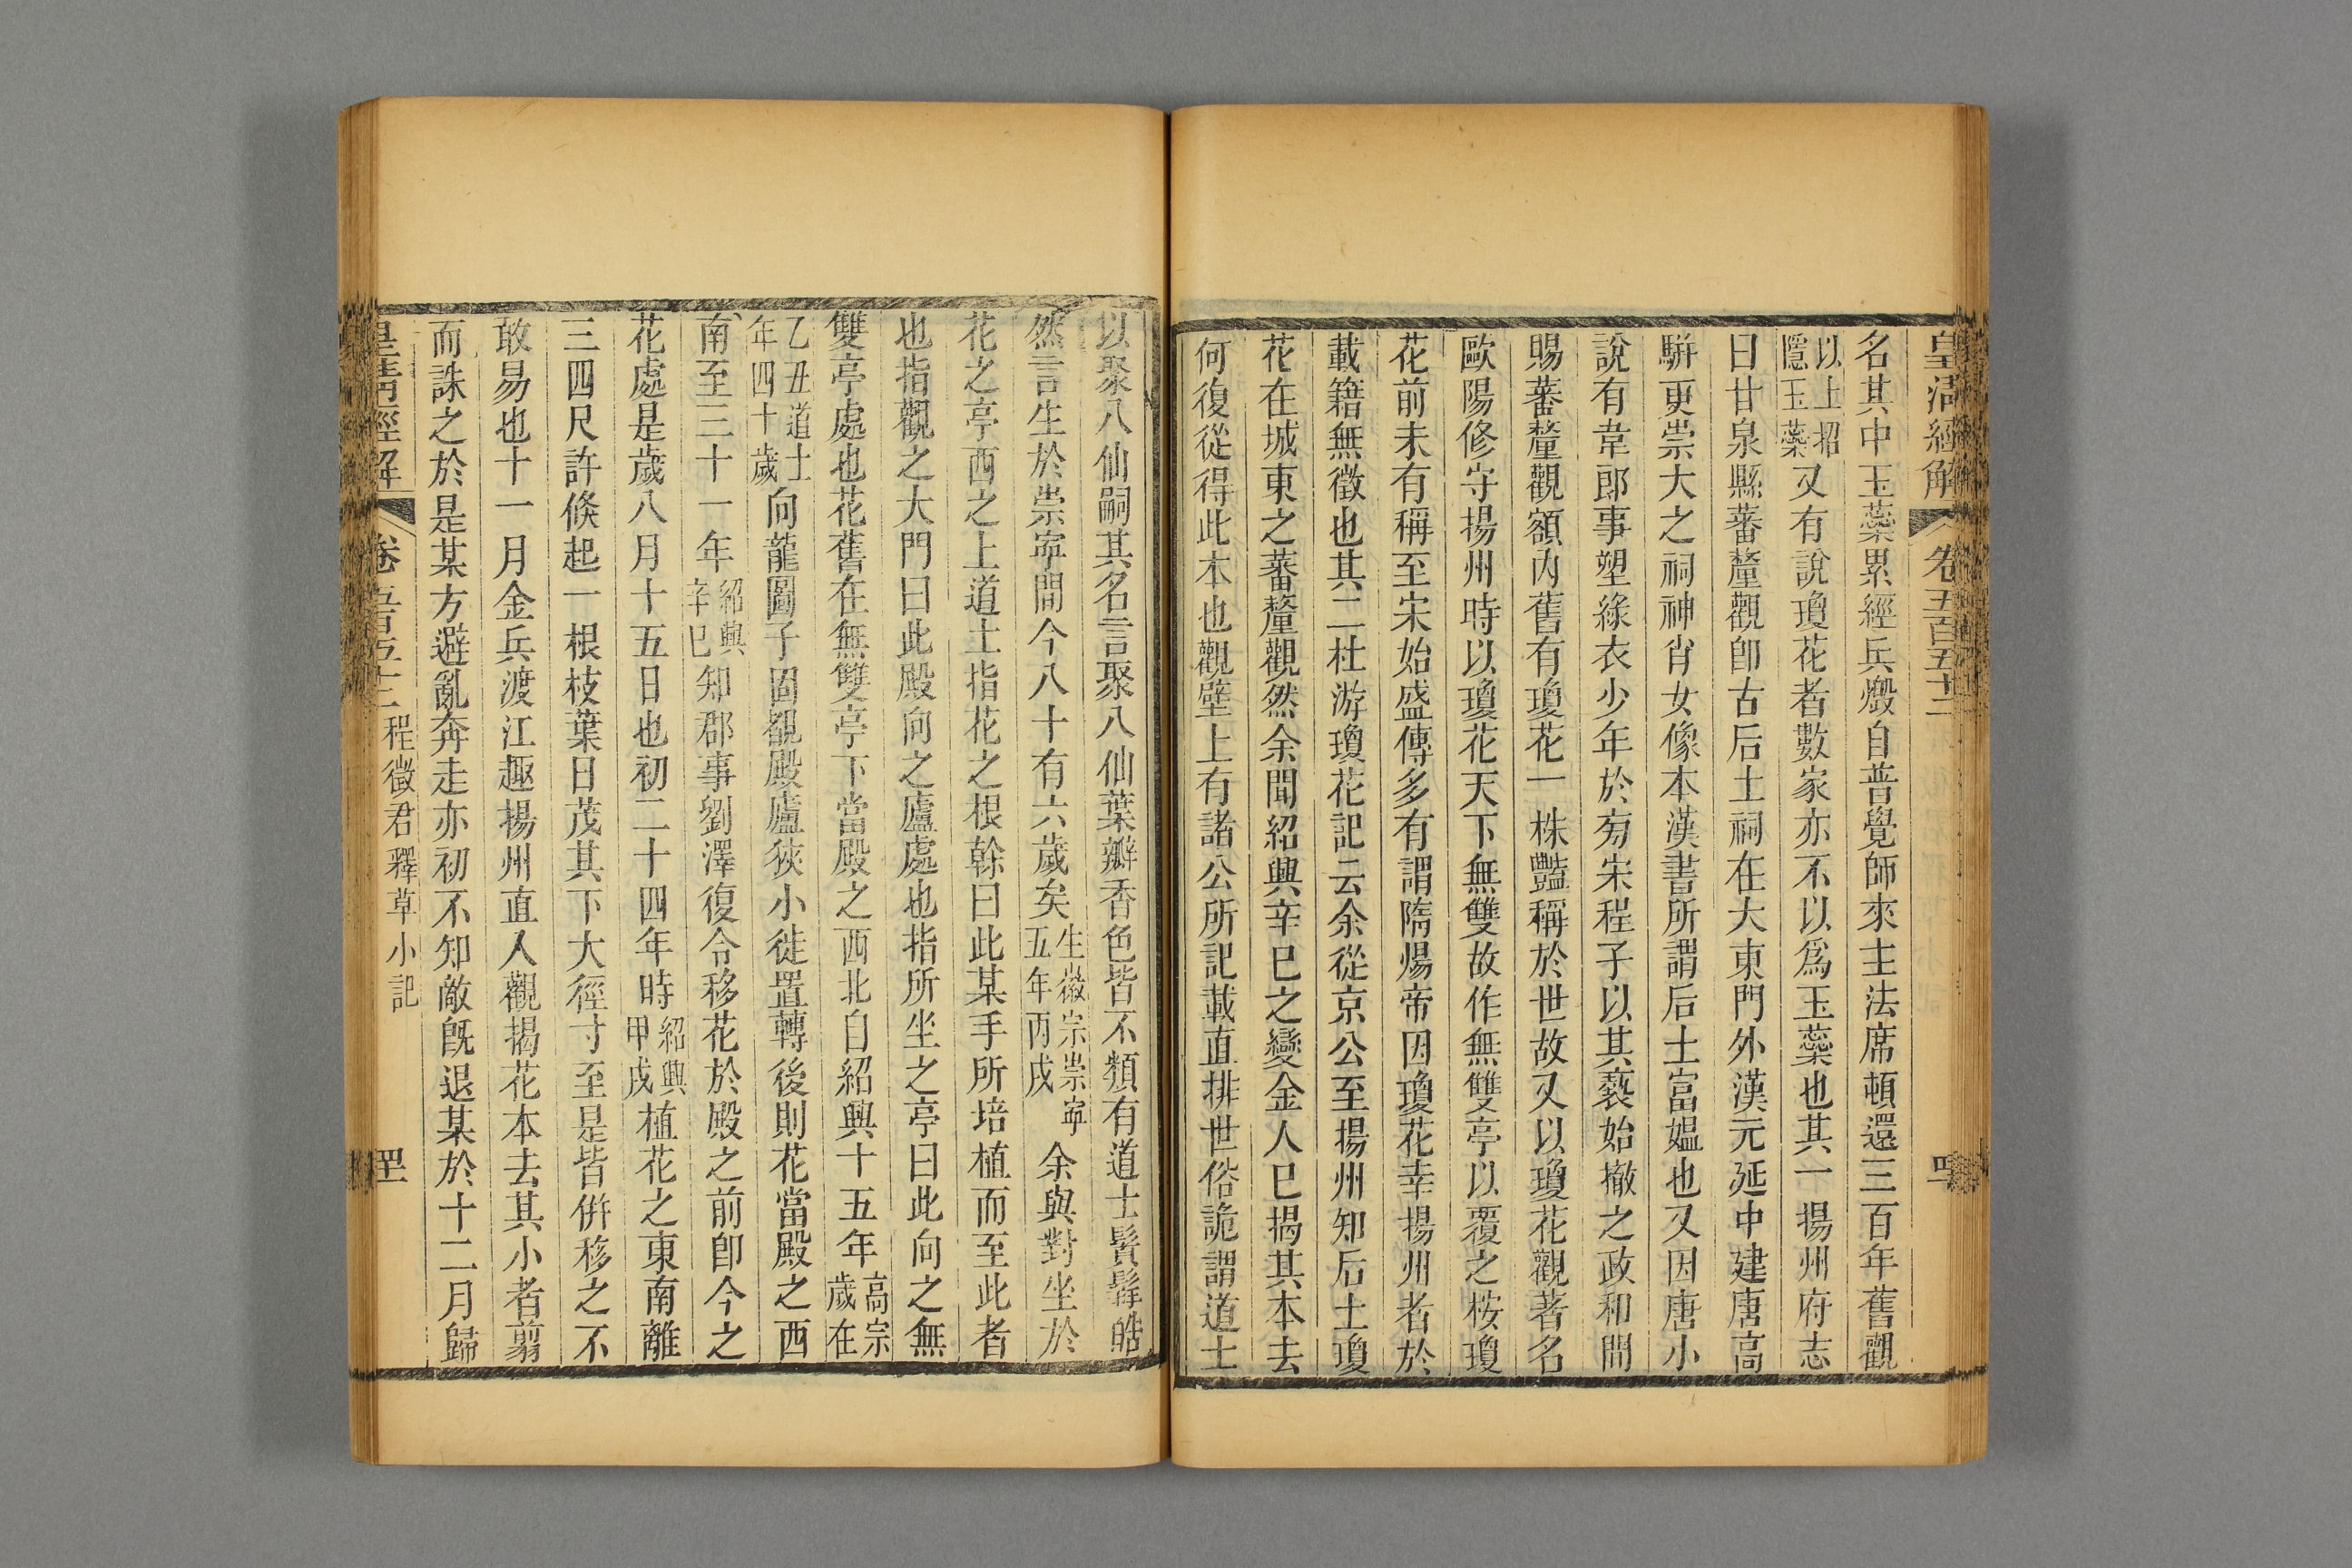 皇清經解 卷五百五十二
名其中玉蘂累經兵燬自普覺師來主法席頓還三百年舊觀
以上招隱玉蘂又有說瓊花者數家亦不以爲玉蘂也其一揚州府志
曰甘泉縣蕃釐觀卽古后土祠在大東門外漢元延中建唐高
駢更崇大之祠神肖女像本漢書所謂后土富媼也又因唐小
說有韋郎事塑綠衣少年於旁宋程子以其褻始撤之政和間
賜蕃釐觀額內舊有瓊花一株豔稱於世故又以瓊花觀著名
歐陽修守揚州時以瓊花天下無雙故作無雙亭以覆之桉瓊
花前未有稱至宋始盛傳多有謂隋煬帝因瓊花幸揚州者於
載籍無徵也其二杜游瓊花記云余從京公至揚州知后土瓊
花在城東之蕃釐觀然余聞紹興辛巳之變金人已揭其本去
何復從得此本也觀壁上有諸公所記載直排世俗詭謂道士
以聚八仙嗣其名言聚八仙葉瓣香色皆不類有道士鬢髯皓
然言生於崇寧間今八十有六歲矣生徽宗崇寧五年丙戌余與對坐於
花之亭西之上道士指花之根榦曰此某手所培植而至此者
也指觀之大門曰此殿向之廬處也指所坐之亭曰此向之無
雙亭處也花舊在無雙亭下當殿之西北自紹興十五年高宗歲在
乙丑道士年四十歲向龍圖子固覩殿廬狹小徙置轉後則花當殿之西
南至三十一年紹興辛巳知郡事劉澤復令移花於殿之前卽今之
花處是歲八月十五日也初二十四年時紹興甲戌植花之東南離
三四尺許倏起一根枝葉日茂其下大徑寸至是皆倂移之不
敢易也十一月金兵渡江趣揚州直入觀揭花本去其小者翦
而誅之於是某方避亂奔走亦初不知敵旣退某於十二月歸
皇清經解 卷五百五十二 程徵君釋草小記